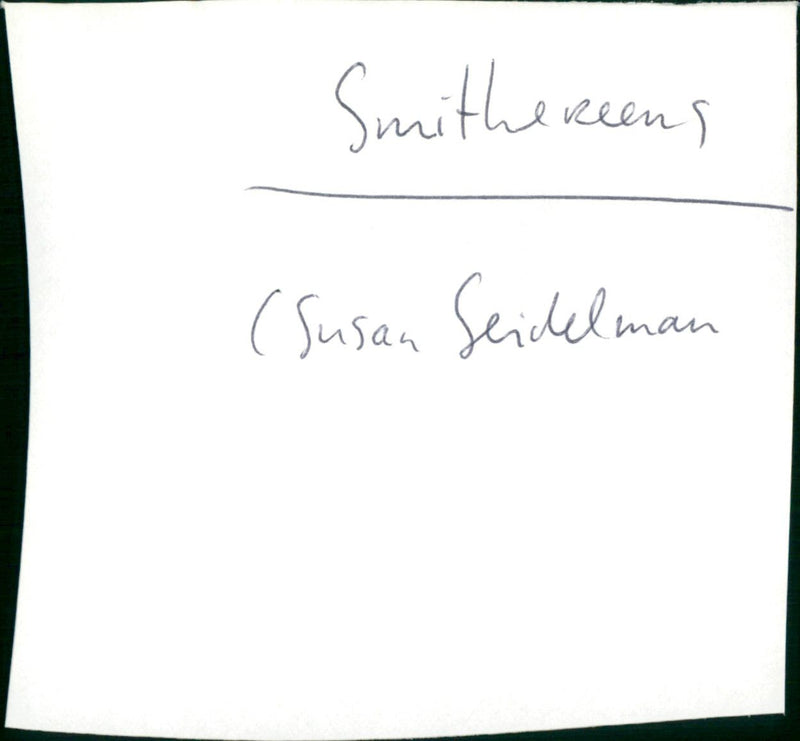 Smithereens
(Susan Seidelman